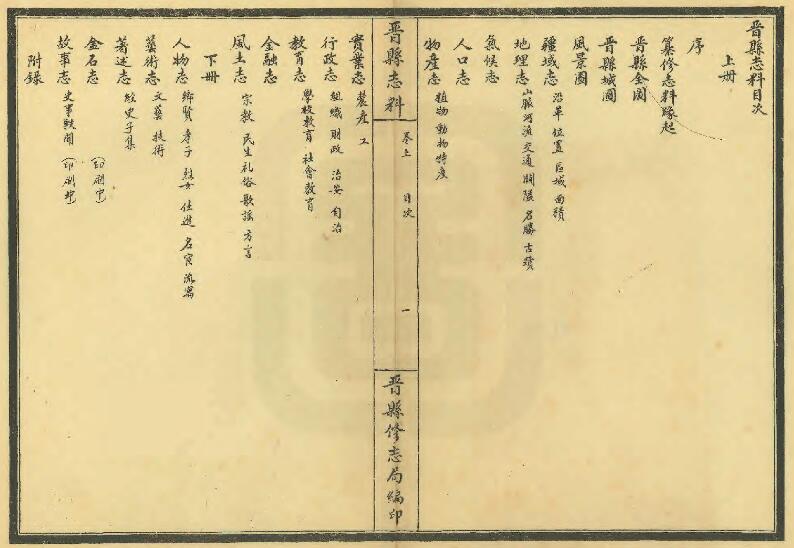 晋縣志料目次
上册
序
纂修志料緣起
晋縣全圖
晋縣城圖
風景圖
疆域志 沿革 位置 區域 面積
地理志 山脈 河流 交通 關隘 名勝 古蹟
氣候志
人口志
物產志 植物 動物 特產
晋縣志料
卷上 目次 一
晋縣修志局編印
實業志 農產 工
行政志 組織 財政 治安 自治
教育志 學校教育 社會教育
金融志
風土志 宗教 民生 礼俗 歌謠 方言
下册
人物志 鄉賢 孝子 烈女 仕進 名宦 流寓
藝術志 文藝 技術
著述志 經史子集
金石志 (印刷中)
故事志 史事軼聞 (印刷中)
附錄